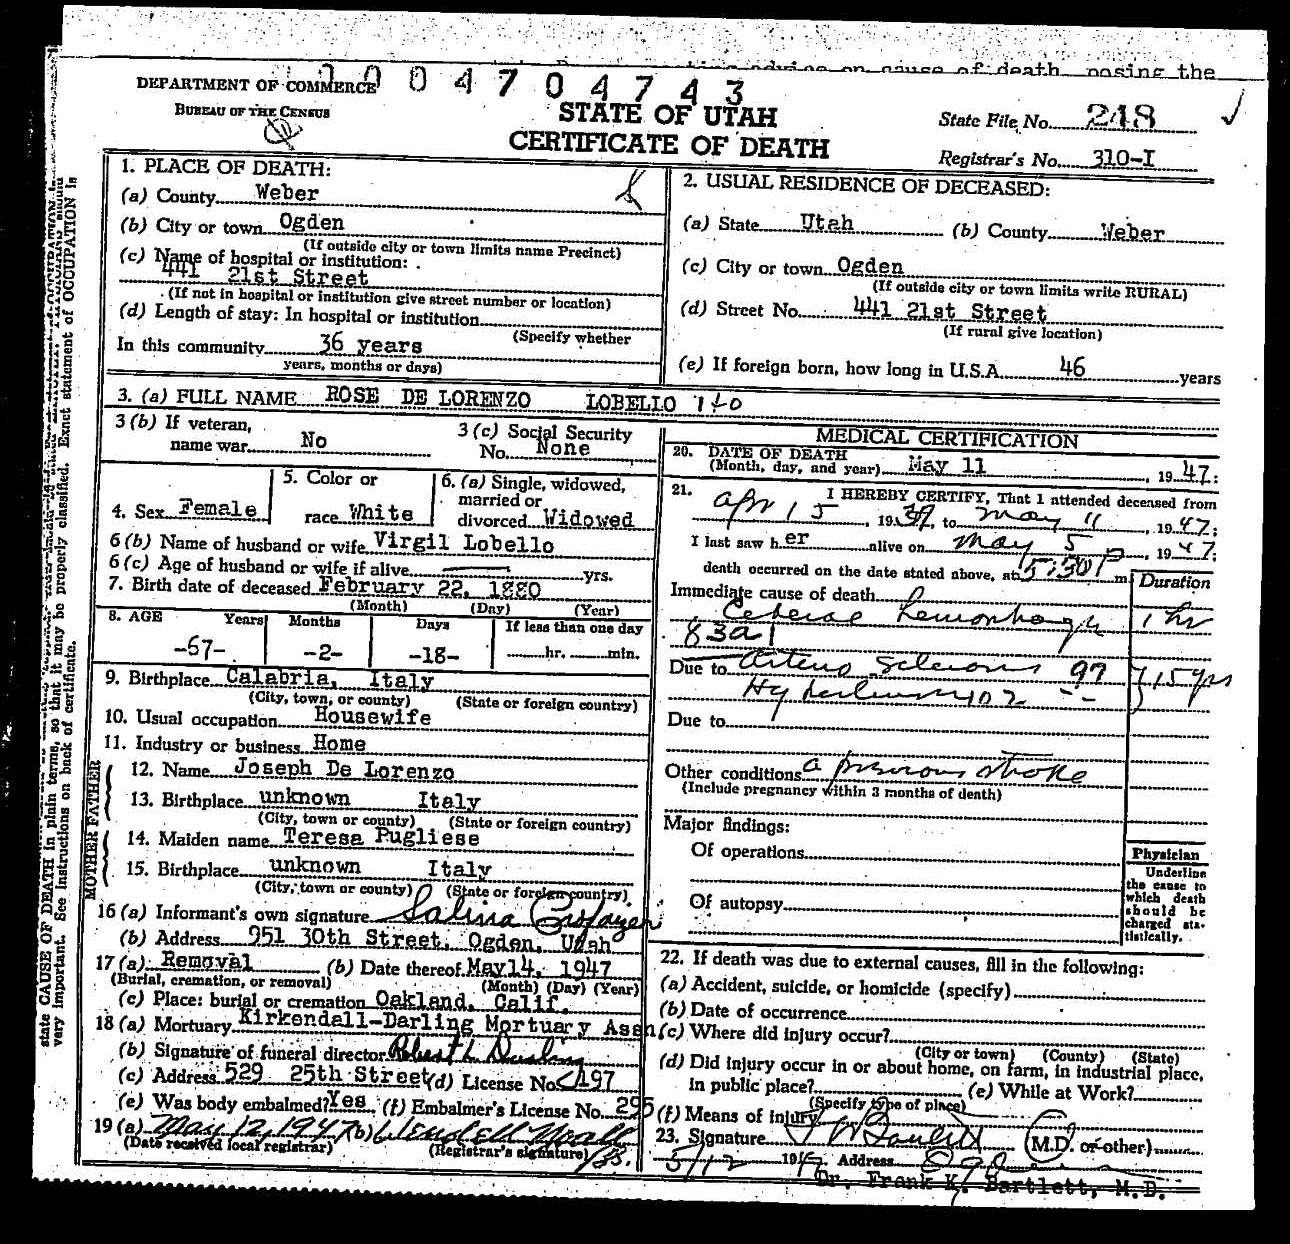 posing the
1004704743
DEPARTMENT OF COMMERCE
BUREAU OF THE CENSUS
STATE OF UTAH
CERTIFICATE OF DEATH
State File No. 248
Registrar's No. 310-I
1. PLACE OF DEATH:
(a) County Weber
(b) City or town Ogden
(If outside city or town limits name Precinct)
(c) Name of hospital or institution:
441 21st Street
(If not in hospital or institution give street number or location)
(d) Length of stay: In hospital or institution
(Specify whether
In this community 36 years
years, months or days)
2. USUAL RESIDENCE OF DECEASED:
(a) State Utah (b) County Weber
(c) City or town Ogden
(If outside city or town limits write RURAL)
(d) Street No. 441 21st Street
(If rural give location)
(e) If foreign born, how long in U.S.A. 46 years
3. (a) FULL NAME ROSE DE LORENZO LOBELLO
3 (b) If veteran,
name war No
3 (c) Social Security
No. None
4. Sex Female
5. Color or
race White
6. (a) Single, widowed,
married or
divorced Widowed
6 (b) Name of husband or wife Virgil Lobello
6 (c) Age of husband or wife if alive yrs.
7. Birth date of deceased February 22, 1880
(Month) (Day) (Year)
8. AGE Years Months Days If less than one day
-67- -2- -18- hr. min.
9. Birthplace Calabria, Italy
(City, town, or county) (State or foreign country)
10. Usual occupation Housewife
11. Industry or business Home
FATHER
12. Name Joseph De Lorenzo
13. Birthplace unknown Italy
(City, town or county) (State or foreign country)
MOTHER
14. Maiden name Teresa Pugliese
15. Birthplace unknown Italy
(City, town or county) (State or foreign country)
16 (a) Informant's own signature Salina
(b) Address 951 30th Street, Ogden, Utah
17 (a) Removal (b) Date thereof May 14, 1947
(Burial, cremation, or removal) (Month) (Day) (Year)
(c) Place: burial or cremation Oakland, Calif.
18 (a) Mortuary Kirkendall-Darling Mortuary Assn
(b) Signature of funeral director Robert L. Darling
(c) Address 529 25th Street (d) License No. 197
(e) Was body embalmed? Yes (f) Embalmer's License No. 295
19 (a) May 12, 1947 (b) Wendell
(Date received local registrar) (Registrar's signature)
MEDICAL CERTIFICATION
20. DATE OF DEATH
(Month, day, and year) May 11, 1947:
21. I HEREBY CERTIFY, That I attended deceased from
Apr 15, 1939, to May 11, 1947;
I last saw her alive on May 5, 1947;
death occurred on the date stated above, at 5:30 P m.
Duration
Immediate cause of death
Cerebral hemorrhage 1 hr
83a1
Due to Arterio Sclerosis 97 } 15 yrs
Hypertension 102
Due to
Other conditions a previous stroke
(Include pregnancy within 3 months of death)
Major findings:
Of operations
Of autopsy
Physician
Underline
the cause to
which death
should be
charged sta-
tistically.
22. If death was due to external causes, fill in the following:
(a) Accident, suicide, or homicide (specify)
(b) Date of occurrence
(c) Where did injury occur?
(City or town) (County) (State)
(d) Did injury occur in or about home, on farm, in industrial place,
in public place? (e) While at Work?
(Specify type of place)
(f) Means of injury
23. Signature F K Bartlett (M.D. or other)
5/12 1947 Address Ogden
Dr. Frank K. Bartlett, M.D.
state CAUSE OF DEATH in plain terms, so that it may be properly classified. Exact statement of OCCUPATION is
very important. See instructions on back of certificate.